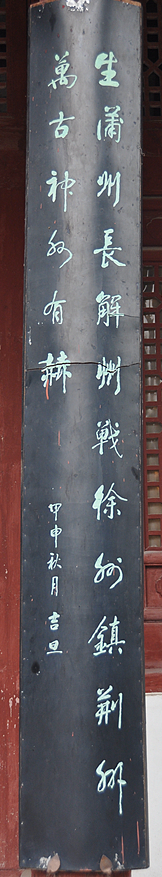 生蒲州長解州戰徐州鎮荆州
萬古神州有赫
甲申秋月吉旦